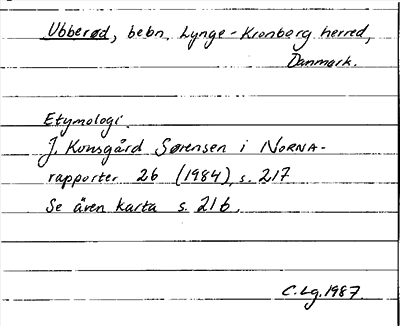 Ubberød, bebn. Lynge-Kronborg herred,
Danmark.
Etymologi.
J. Kousgård Sørensen i NORNA-
rapporter 26 (1984), s. 217
Se även karta s. 216.
C. Lg. 1987.